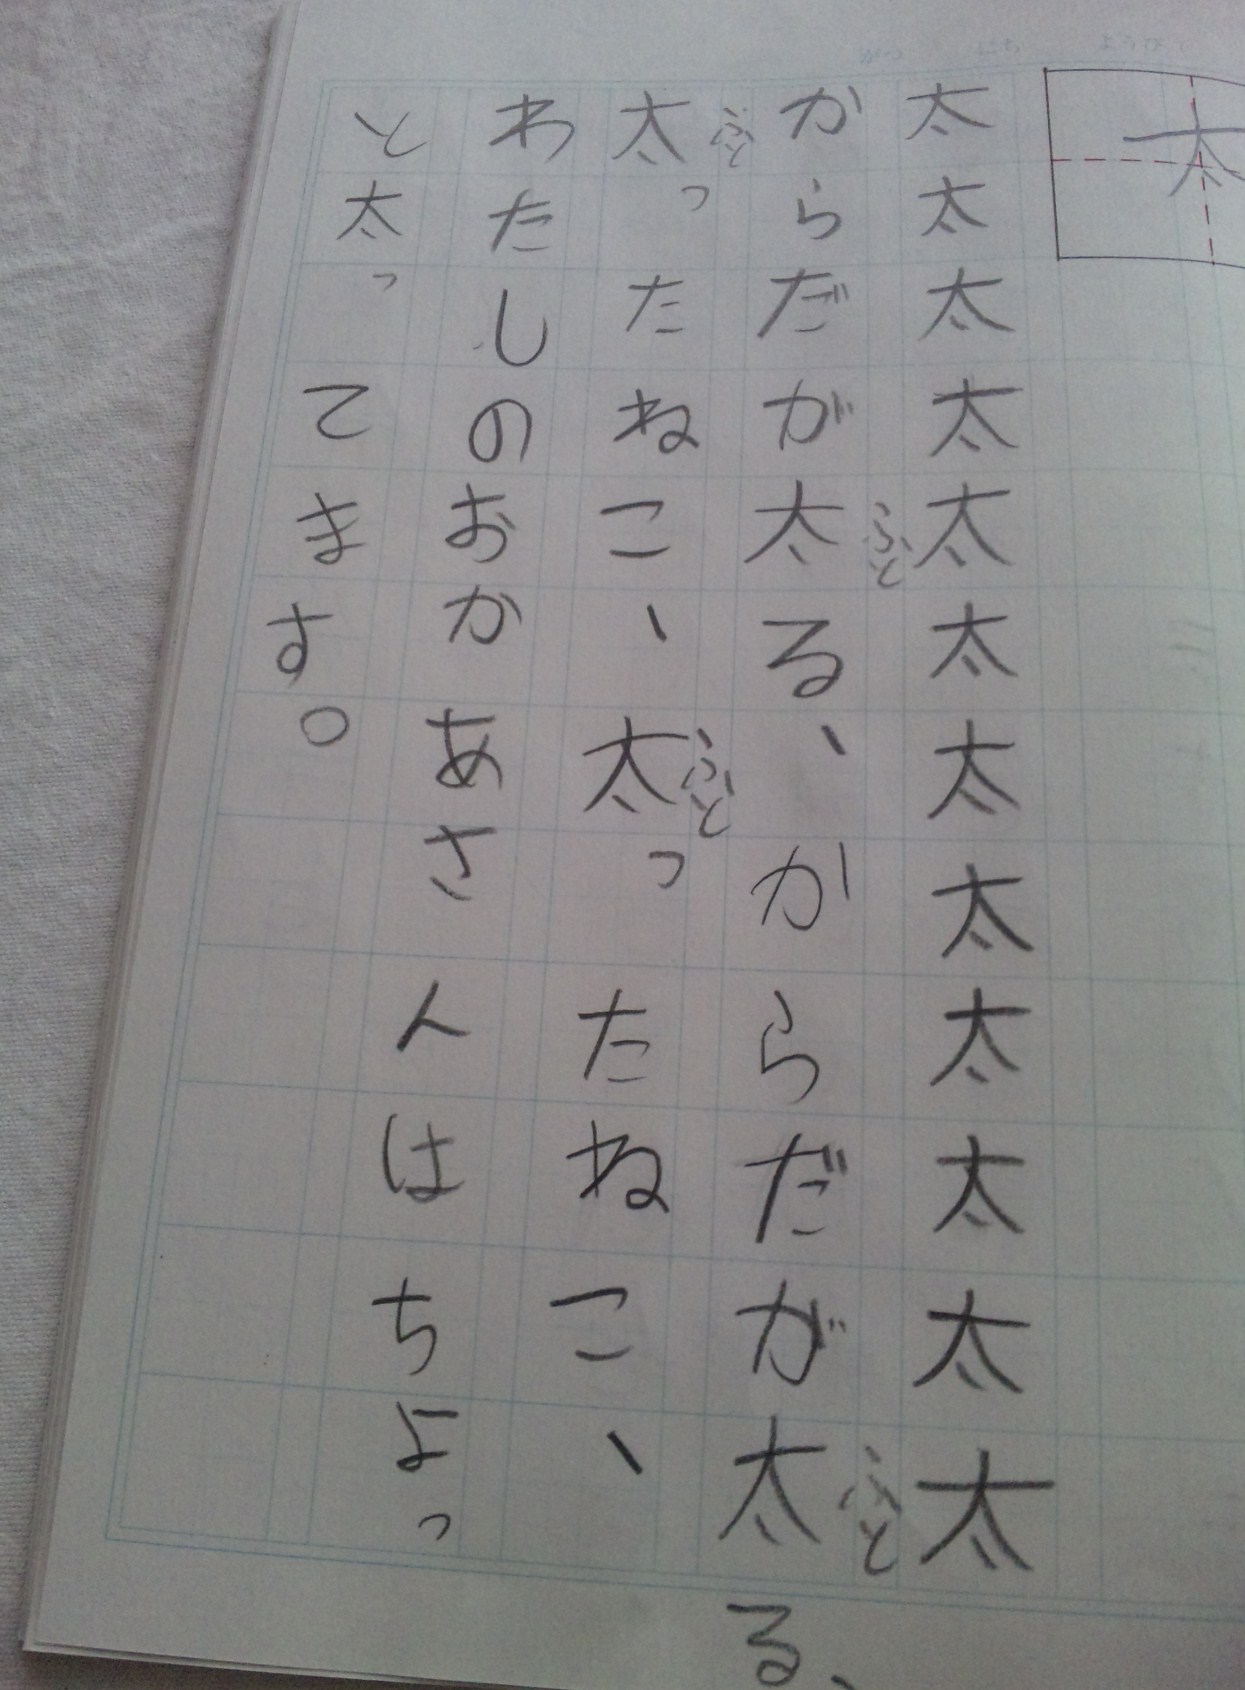 太
太太太太太太太太太太太太
ふと ふと
からだが太る、からだが太る、
ふと ふと
太ったねこ、太ったねこ、
わたしのおかあさんはちょっ
と太ってます。